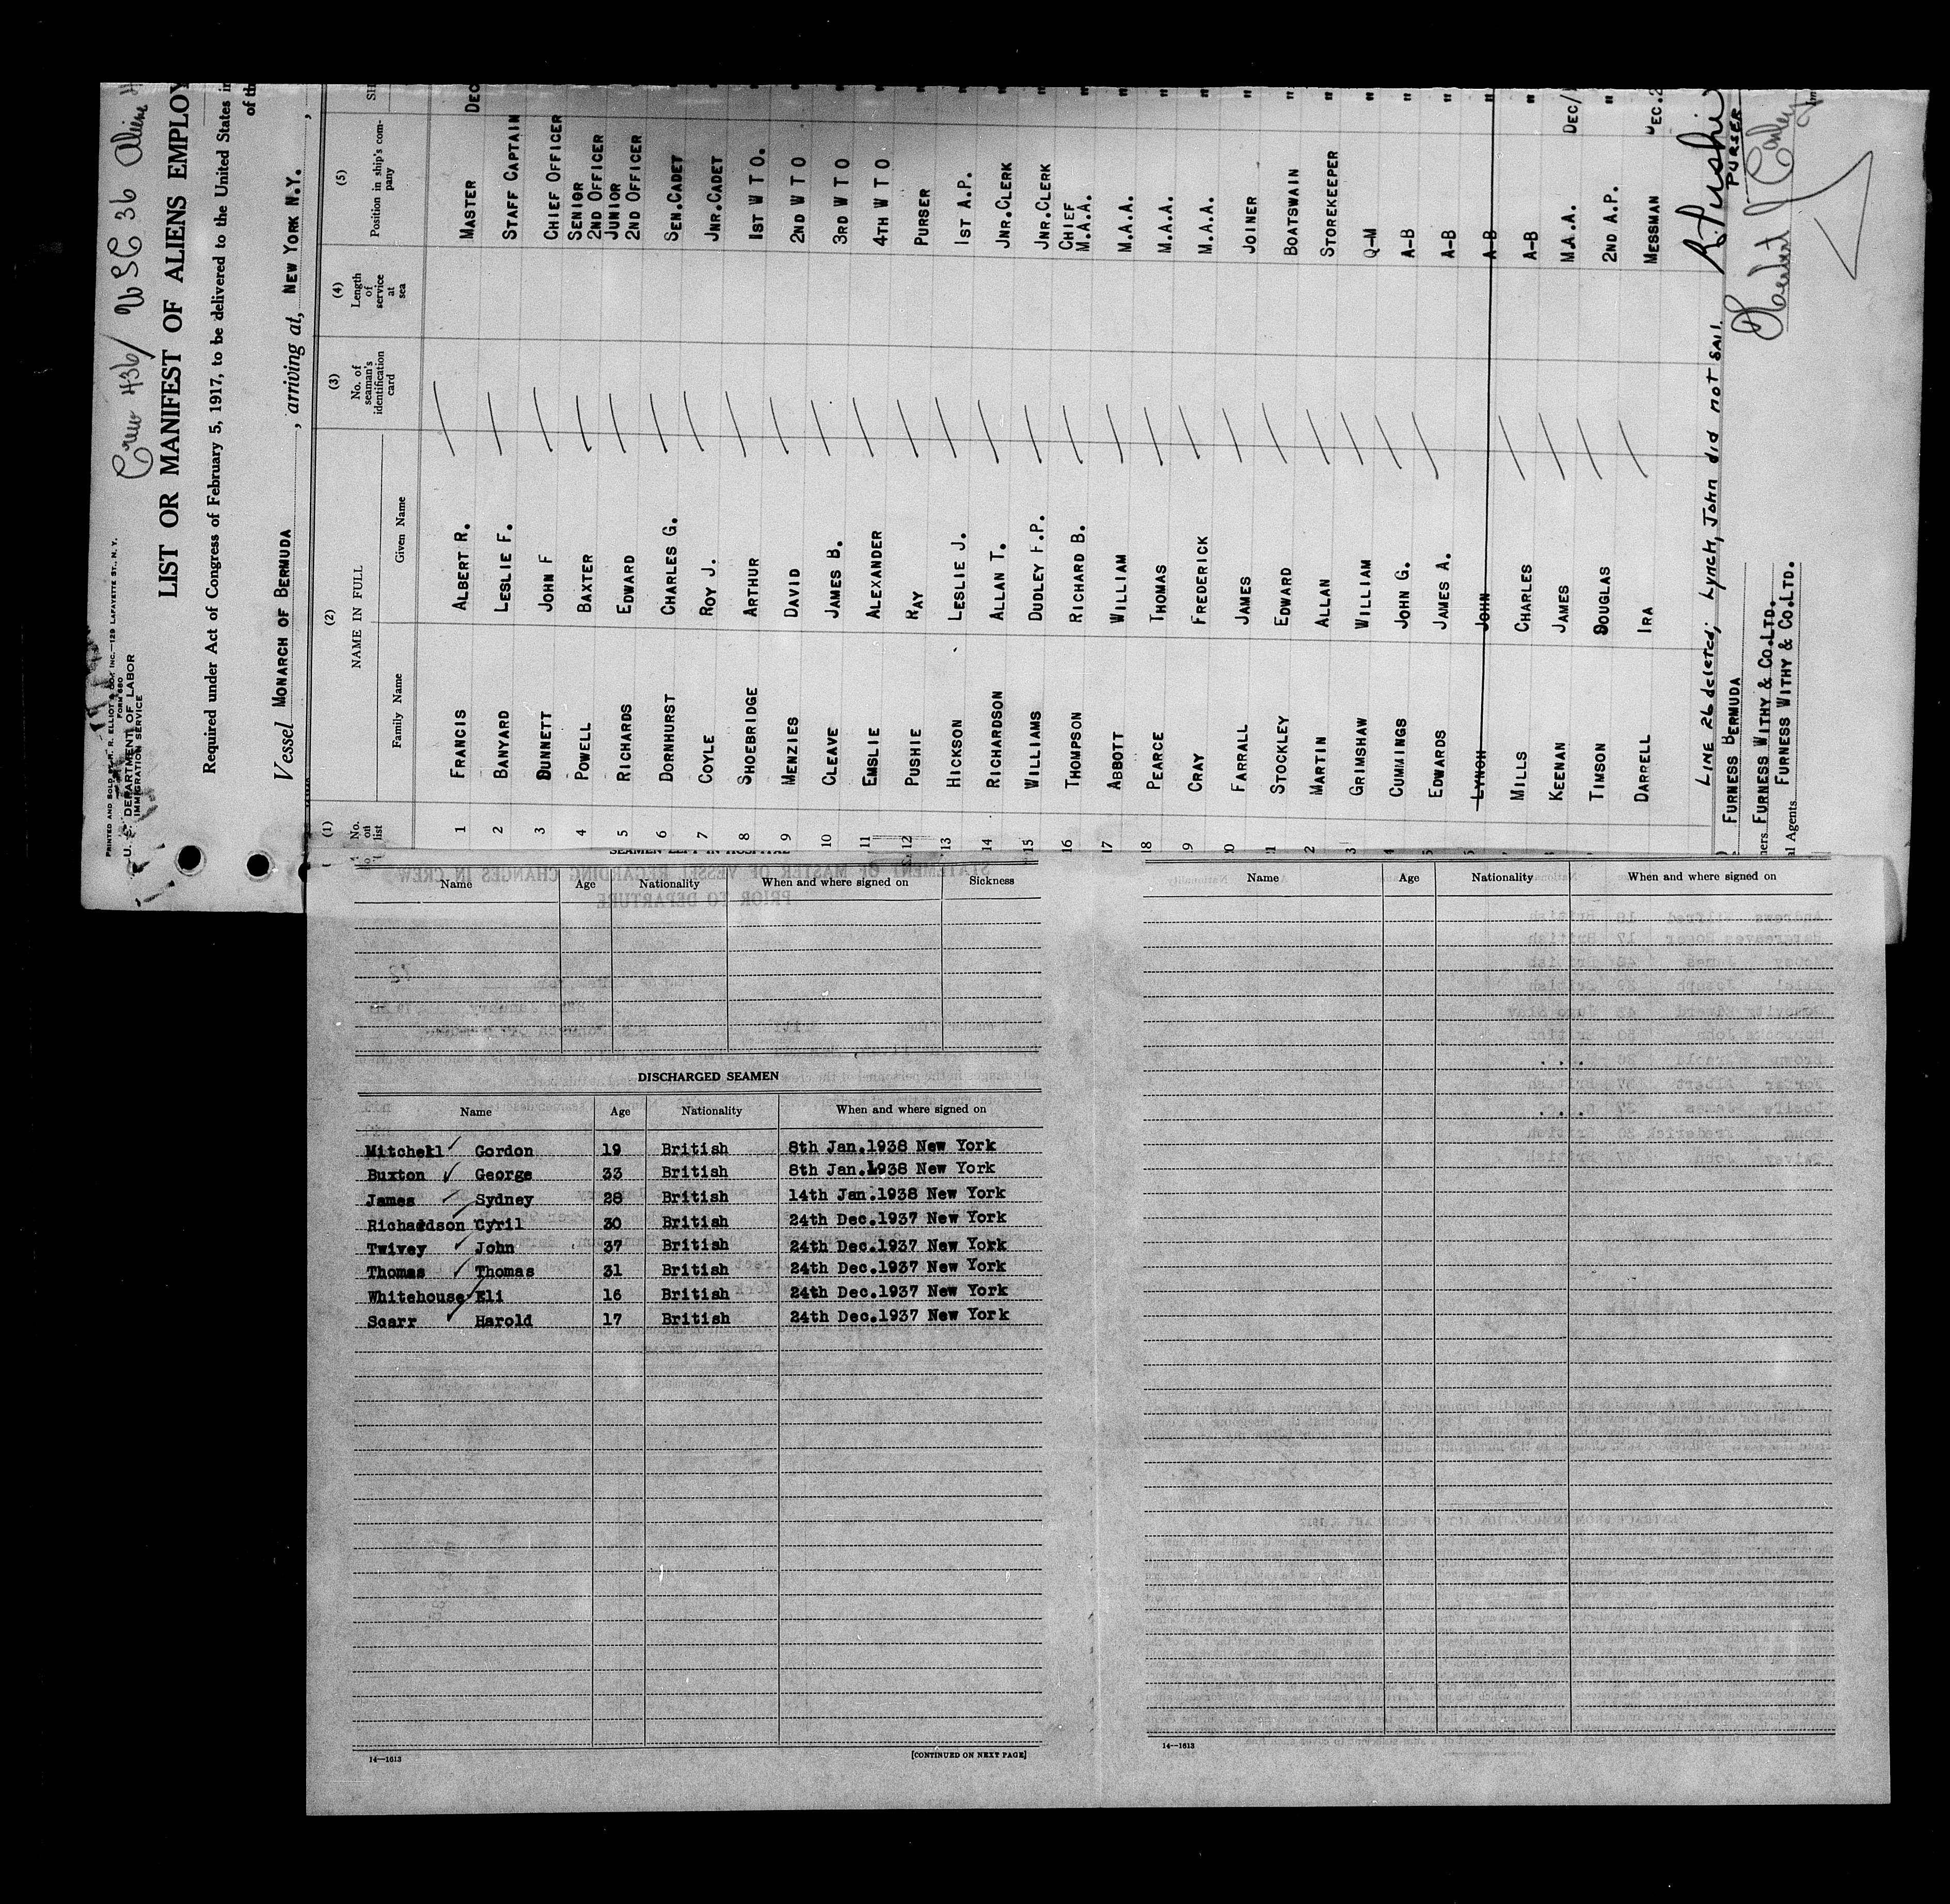 Crew 436/ USC 36 Aliens
PRINTED AND SOLD BY M. R. ELLIOT & CO., INC.—129 LAFAYETTE ST., N. Y.
FORM 680
U. S. DEPARTMENT OF LABOR
IMMIGRATION SERVICE
LIST OR MANIFEST OF ALIENS EMPLOY
Required under Act of Congress of February 5, 1917, to be delivered to the United States
of
Vessel MONARCH OF BERMUDA, arriving at, NEW YORK N.Y.,
(1) (2) (3) (4) (5)
No. on list NAME IN FULL No. of seaman's identification card Length of service at sea Position in ship's company SH
Family Name Given Name
1 FRANCIS ALBERT R. MASTER DEC
2 BANYARD LESLIE F. STAFF CAPTAIN "
3 DUNNETT JOHN F CHIEF OFFICER "
4 POWELL BAXTER SENIOR 2ND OFFICER "
5 RICHARDS EDWARD JUNIOR 2ND OFFICER "
6 DORNHURST CHARLES G. SEN.CADET "
7 COYLE ROY J. JNR.CADET "
8 SHOEBRIDGE ARTHUR 1ST W T O. "
9 MENZIES DAVID 2ND W T O "
10 CLEAVE JAMES B. 3RD W T O "
11 EMSLIE ALEXANDER 4TH W T O "
12 PUSHIE RAY PURSER "
13 HICKSON LESLIE J. 1ST A.P. "
14 RICHARDSON ALLAN T. JNR.CLERK "
15 WILLIAMS DUDLEY F.P. JNR.CLERK "
16 THOMPSON RICHARD B. CHIEF M.A.A. "
17 ABBOTT WILLIAM M.A.A. "
18 PEARCE THOMAS M.A.A. "
9 CRAY FREDERICK M.A.A. "
0 FARRALL JAMES JOINER "
1 STOCKLEY EDWARD BOATSWAIN "
2 MARTIN ALLAN STOREKEEPER "
3 GRIMSHAW WILLIAM Q-M "
4 CUMMINGS JOHN G. A-B "
5 EDWARDS JAMES A. A-B "
6 LYNCH JOHN A-B "
MILLS CHARLES A-B "
KEENAN JAMES M.A.A. DEC/
TIMSON DOUGLAS 2ND A.P. "
DARRELL IRA MESSMAN DEC.2
LINE 26 deleted; Lynch, John did not sail.
R. Pushie
PURSER
FURNESS BERMUDA
ners FURNESS WITHY & CO.LTD.
al Agents FURNESS WITHY & CO.LTD.
SEAMEN LEFT IN HOSPITAL
Name Age Nationality When and where signed on Sickness
DISCHARGED SEAMEN
Name Age Nationality When and where signed on
Mitchell Gordon 19 British 8th Jan.1938 New York
Buxton George 33 British 8th Jan.1938 New York
James Sydney 28 British 14th Jan.1938 New York
Richardson Cyril 30 British 24th Dec.1937 New York
Twivey John 37 British 24th Dec.1937 New York
Thomas Thomas 31 British 24th Dec.1937 New York
Whitehouse Eli 16 British 24th Dec.1937 New York
Scarr Harold 17 British 24th Dec.1937 New York
14—1613
[CONTINUED ON NEXT PAGE]
Name Age Nationality When and where signed on
14—1613